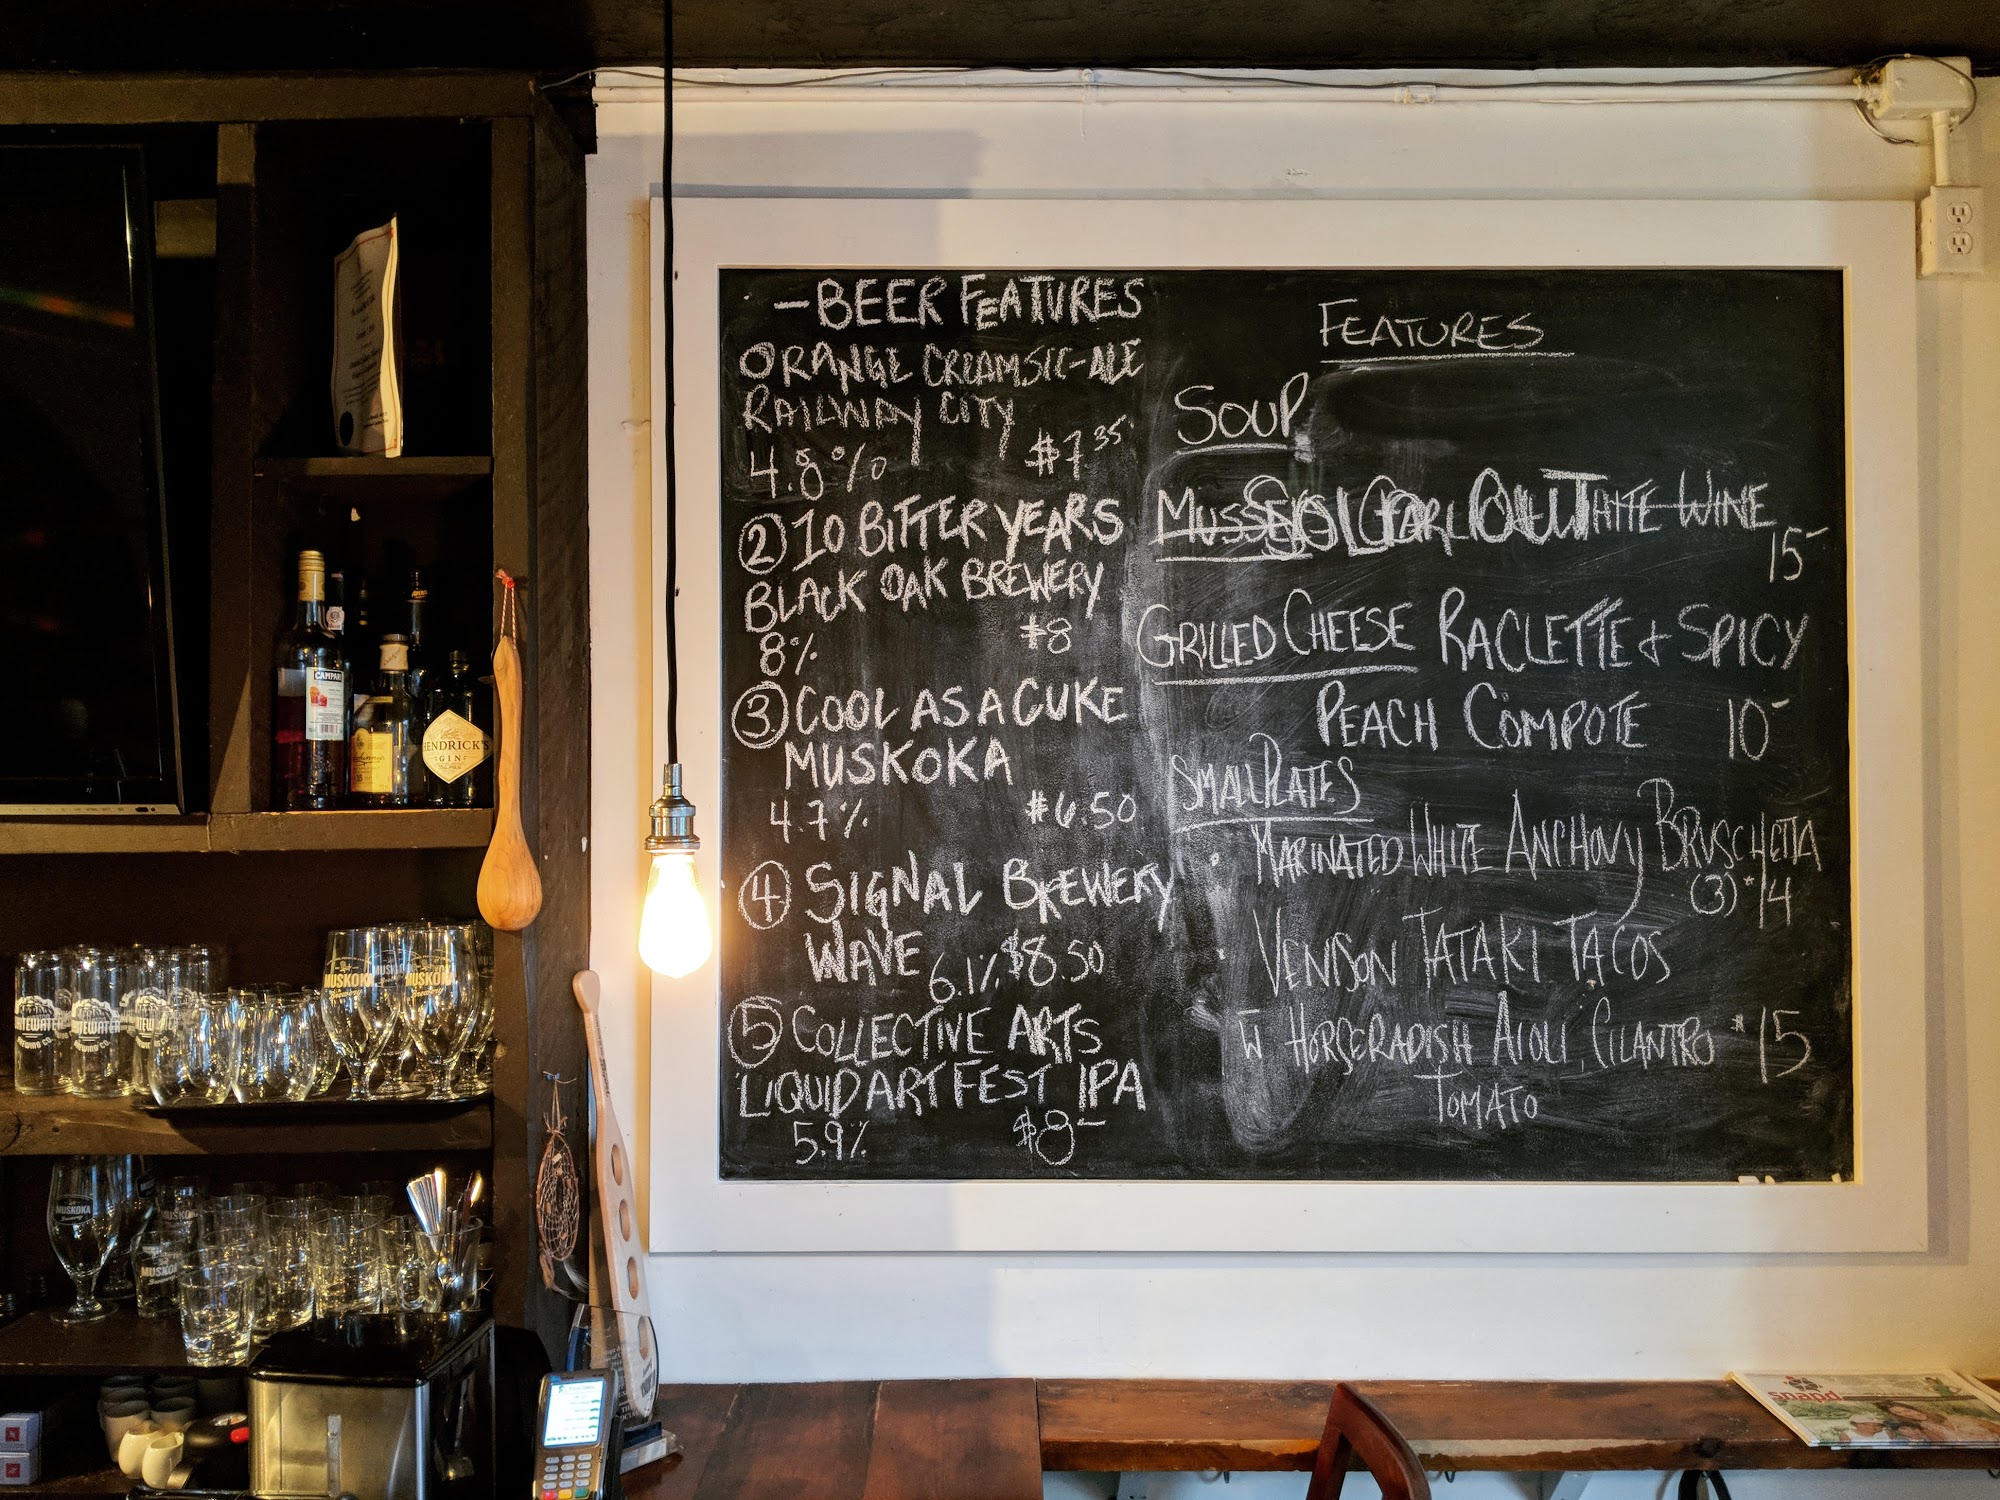 —BEER FEATURES
ORANGE CREAMSIC-ALE
RAILWAY CITY
4.8% $7.35
② 10 BITTER YEARS
BLACK OAK BREWERY
8% $8
③ COOL AS A CUKE
MUSKOKA
4.7% $6.50
④ SIGNAL BREWERY
WAVE 6.1% $8.50
⑤ COLLECTIVE ARTS
LIQUID ART FEST IPA
5.9% $8-
FEATURES
SOUP
MUSSELS SOLD OUT WHITE WINE
15-
GRILLED CHEESE RACLETTE & SPICY
PEACH COMPOTE 10-
SMALL PLATES
• MARINATED WHITE ANCHOVY BRUSCHETTA
(3) $14
• VENISON TATAKI TACOS
W HORSERADISH AIOLI CILANTRO $15
TOMATO
CAMPARI
HENDRICK'S
GIN
MUSKOKA
MUSKOKA
MUSKOKA
MUSKOKA
snapd